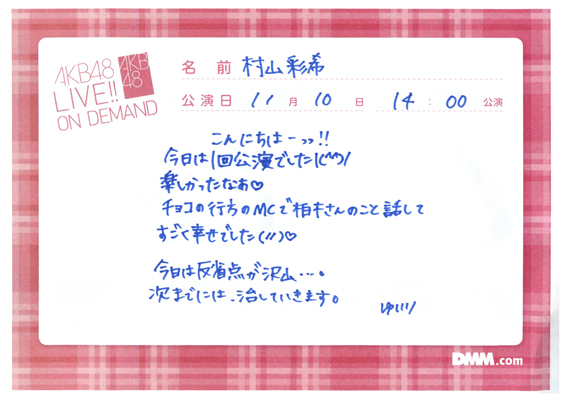 AKB48
LIVE!!
ON DEMAND
AKB
48
名前 村山彩希
公演日 11月10日 14:00公演
こんにちはーっっ!!
今日は1回公演でした\(^^)/
楽しかったなぁ♡
チョコの行方のMCで柏木さんのこと話して
すごく幸せでした(//)♡
今日は反省点が沢山…。
次までには、治していきます。
ゆいり
DMM.com